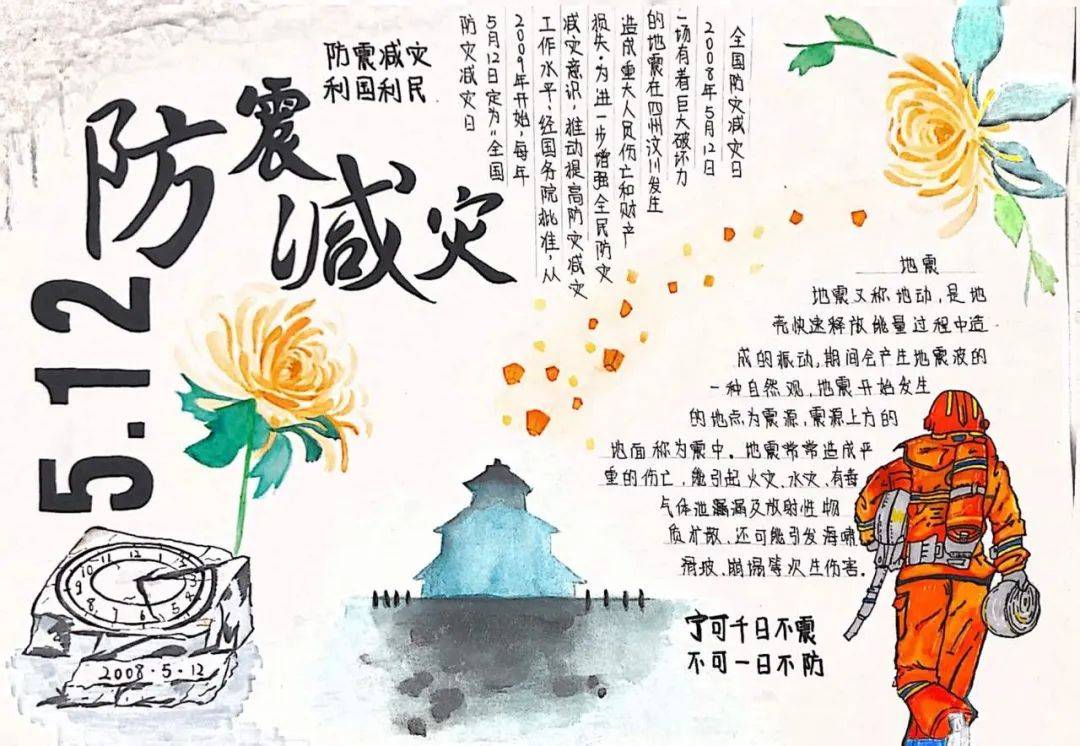 防震减灾
利国利民
防震减灾
5.12
全国防灾减灾日
2008年5月12日
一场有着巨大破坏力
的地震在四州汶川发生
造成重大人员伤亡和财产
损失.为进一步增强全民防灾
减灾意识,推动提高防灾减灾
工作水平,经国务院批准,从
2009年开始,每年
5月12日定为"全国
防灾减灾日
地震
地震又称地动,是地
壳快速释放能量过程中造
成的振动,期间会产生地震波的
一种自然观,地震开始发生
的地点为震源,震源上方的
地面称为震中。地震常常造成严
重的伤亡,能引起火灾、水灾、有毒
气体泄漏漏及放射性物
质扩散,还可能引发海啸
滑坡、崩塌等次生伤害.
了可千日不震
不可一日不防
2008·5·12